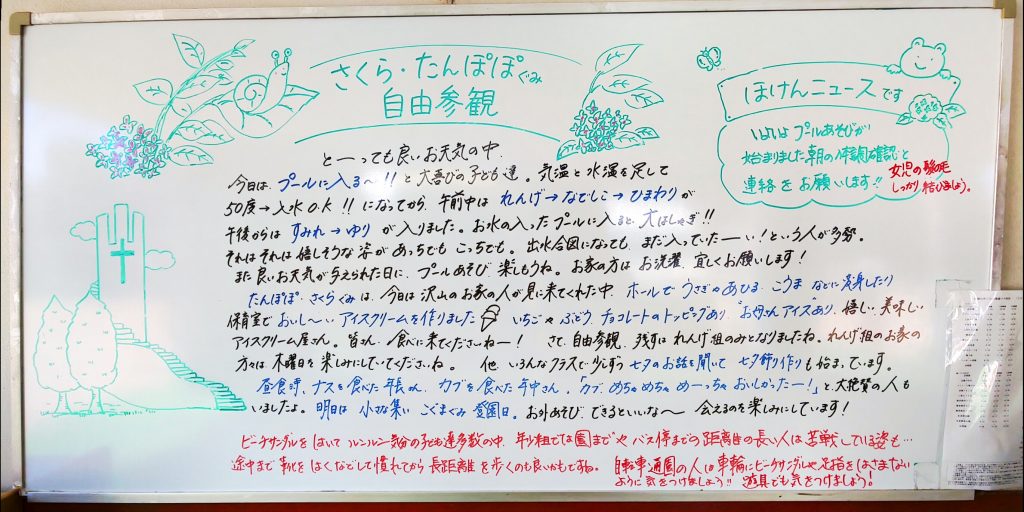 さくら・たんぽぽぐみ
自由参観
ほけんニュースです
いよいよ プールあそびが
始まりました 朝の体調確認と
連絡をお願いします!!
女児の髪の毛
しっかり結びましょう。
とーっても良いお天気の中、
今日は、プールに入る〜!!と大喜びの子ども達。気温と水温を足して
50度→入水O.K!!になってから 午前中は れんげ→なでしこ→ひまわりが
午後からは すみれ→ゆり が入りました。お水の入ったプールに入ると、大はしゃぎ!!
それはそれは嬉しそうな姿があっちでもこっちでも。出水合図になっても、まだ入っていたーい!という人が多勢。
また良いお天気が与えられた日に、プールあそび 楽しもうね。お家の方は お洗濯、宜しくお願いします!
たんぽぽ・さくらぐみは、今日は沢山のお家の人が見に来てくれた中、ホールで うさぎやあひる、こうま などに変身したり
保育室で おいし〜い アイスクリームを作りました いちごや ぶどう、チョコレートのトッピングあり、"お母さんアイズ"あり、嬉しい、美味しい
アイスクリーム屋さん。皆さん、食べに来てくださいねー! さて、自由参観、残すは れんげ組のみとなりましたね。れんげ組のお家の
方々は 木曜日を楽しみにしていてくださいね。 他、いろんなクラスで少しずつ 七夕のお話を聞いて 七夕飾り作り も始まっています。
昼食時、ナスを食べた年長さん、カブを食べた年中さん、「カブ、めちゃめちゃ めーっちゃ おいしかったー!」と、大絶賛の人も
いましたよ。明日は 小さな集い こぐまぐみ 登園日。お外あそび、できるといいな〜 会えるのを楽しみにしています!
ビーチサンダルをはいて ルンルン気分の子ども達多数の中、年少組では園までや バス停までの距離の長い人は苦戦している姿も…
途中まで靴をはくなどして慣れてから 長距離を歩くのも良いかもですね。 自転車通園の人は車輪にビーチサンダルや足指をはさまない
ように気をつけましょう!! 遊具でも気をつけましょう!